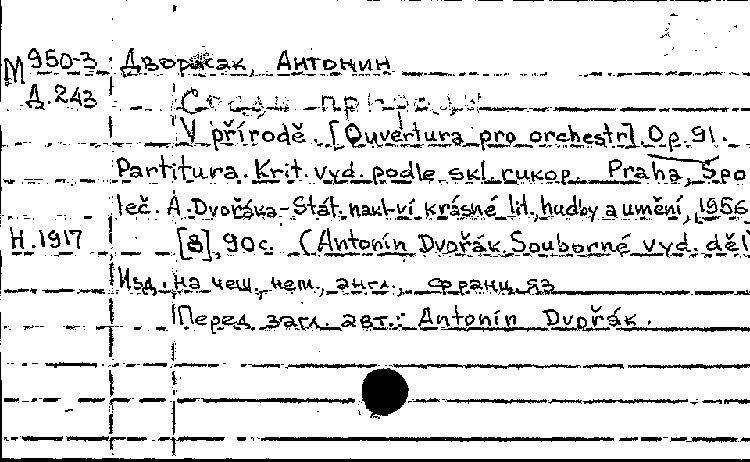 М 950-3 Дворжак, Антонин
Д.243 Среди природы
V přírodě. [Ouvertura pro orchestr]. Op. 91.
Partitura. Krit. vyd. podle skl. rukop. Praha, Spo
leč. A. Dvořáka - Stát. nakl-ví krásné lit., hudby a umění, 1956
Н.1917 [8], 90 с. (Antonín Dvořák. Souborné vyd. děl
Изд. на чеш., нем., англ., франц. яз
Перед загл. авт.: Antonín Dvořák.